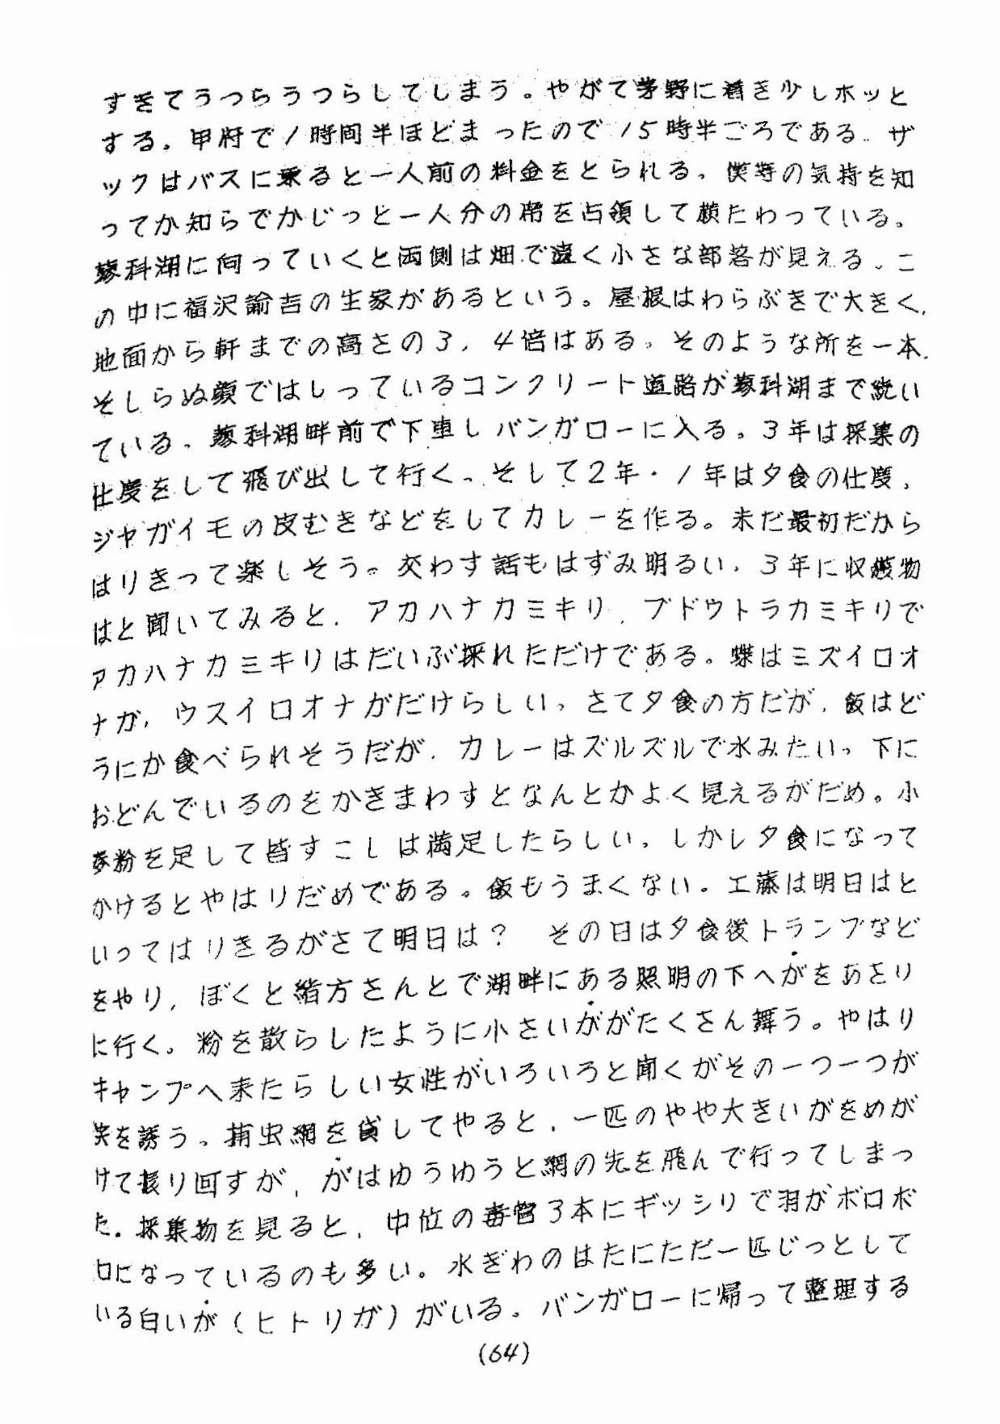 すぎてうつらうつらしてしまう。やがて茅野に着き少しホッと
する。甲府で1時間半ほどまったので15時半ごろである。ザ
ックはバスに乗ると一人前の料金をとられる。僕等の気持を知
ってか知らでかじっと一人分の席を占領して横たわっている。
蓼科湖に向っていくと両側は畑で遠く小さな部落が見える。こ
の中に福沢諭吉の生家があるという。屋根はわらぶきで大きく,
地面から軒までの高さの3,4倍はある。そのような所を一本,
そしらぬ顔ではしっているコンクリート道路が蓼科湖まで続い
ている。蓼科湖畔前で下車しバンガローに入る。3年は採集の
仕度をして飛び出して行く。そして2年・1年は夕食の仕度,
ジャガイモの皮むきなどをしてカレーを作る。未だ最初だから
はりきって楽しそう。交わす話もはずみ明るい,3年に収獲物
はと聞いてみると,アカハナカミキリ,ブドウトラカミキリで
アカハナカミキリはだいぶ採れただけである。蝶はミズイロオ
ナガ,ウスイロオナガだけらしい。さて夕食の方だが,飯はど
うにか食べられそうだが,カレーはズルズルで水みたい。下に
おどんでいるのをかきまわすとなんとかよく見えるがだめ。小
麦粉を足して皆すこしは満足したらしい。しかし夕食になって
かけるとやはりだめである。飯もうまくない。工藤は明日はと
いってはりきるがさて明日は? その日は夕食後トランプなど
をやり,ぼくと緒方さんとで湖畔にある照明の下へがをあさり
に行く。粉を散らしたように小さいががたくさん舞う。やはり
キャンプへ来たらしい女性がいろいろと聞くがその一つ一つが
笑を誘う。捕虫網を貸してやると,一匹のやや大きいがをめが
けて振り回すが,がはゆうゆうと網の先を飛んで行ってしまっ
た。採集物を見ると,中位の毒管3本にギッシリで羽がボロボ
ロになっているのも多い。水ぎわのはたにただ一匹じっとして
いる白いが(ヒトリガ)がいる。バンガローに帰って整理する
(64)